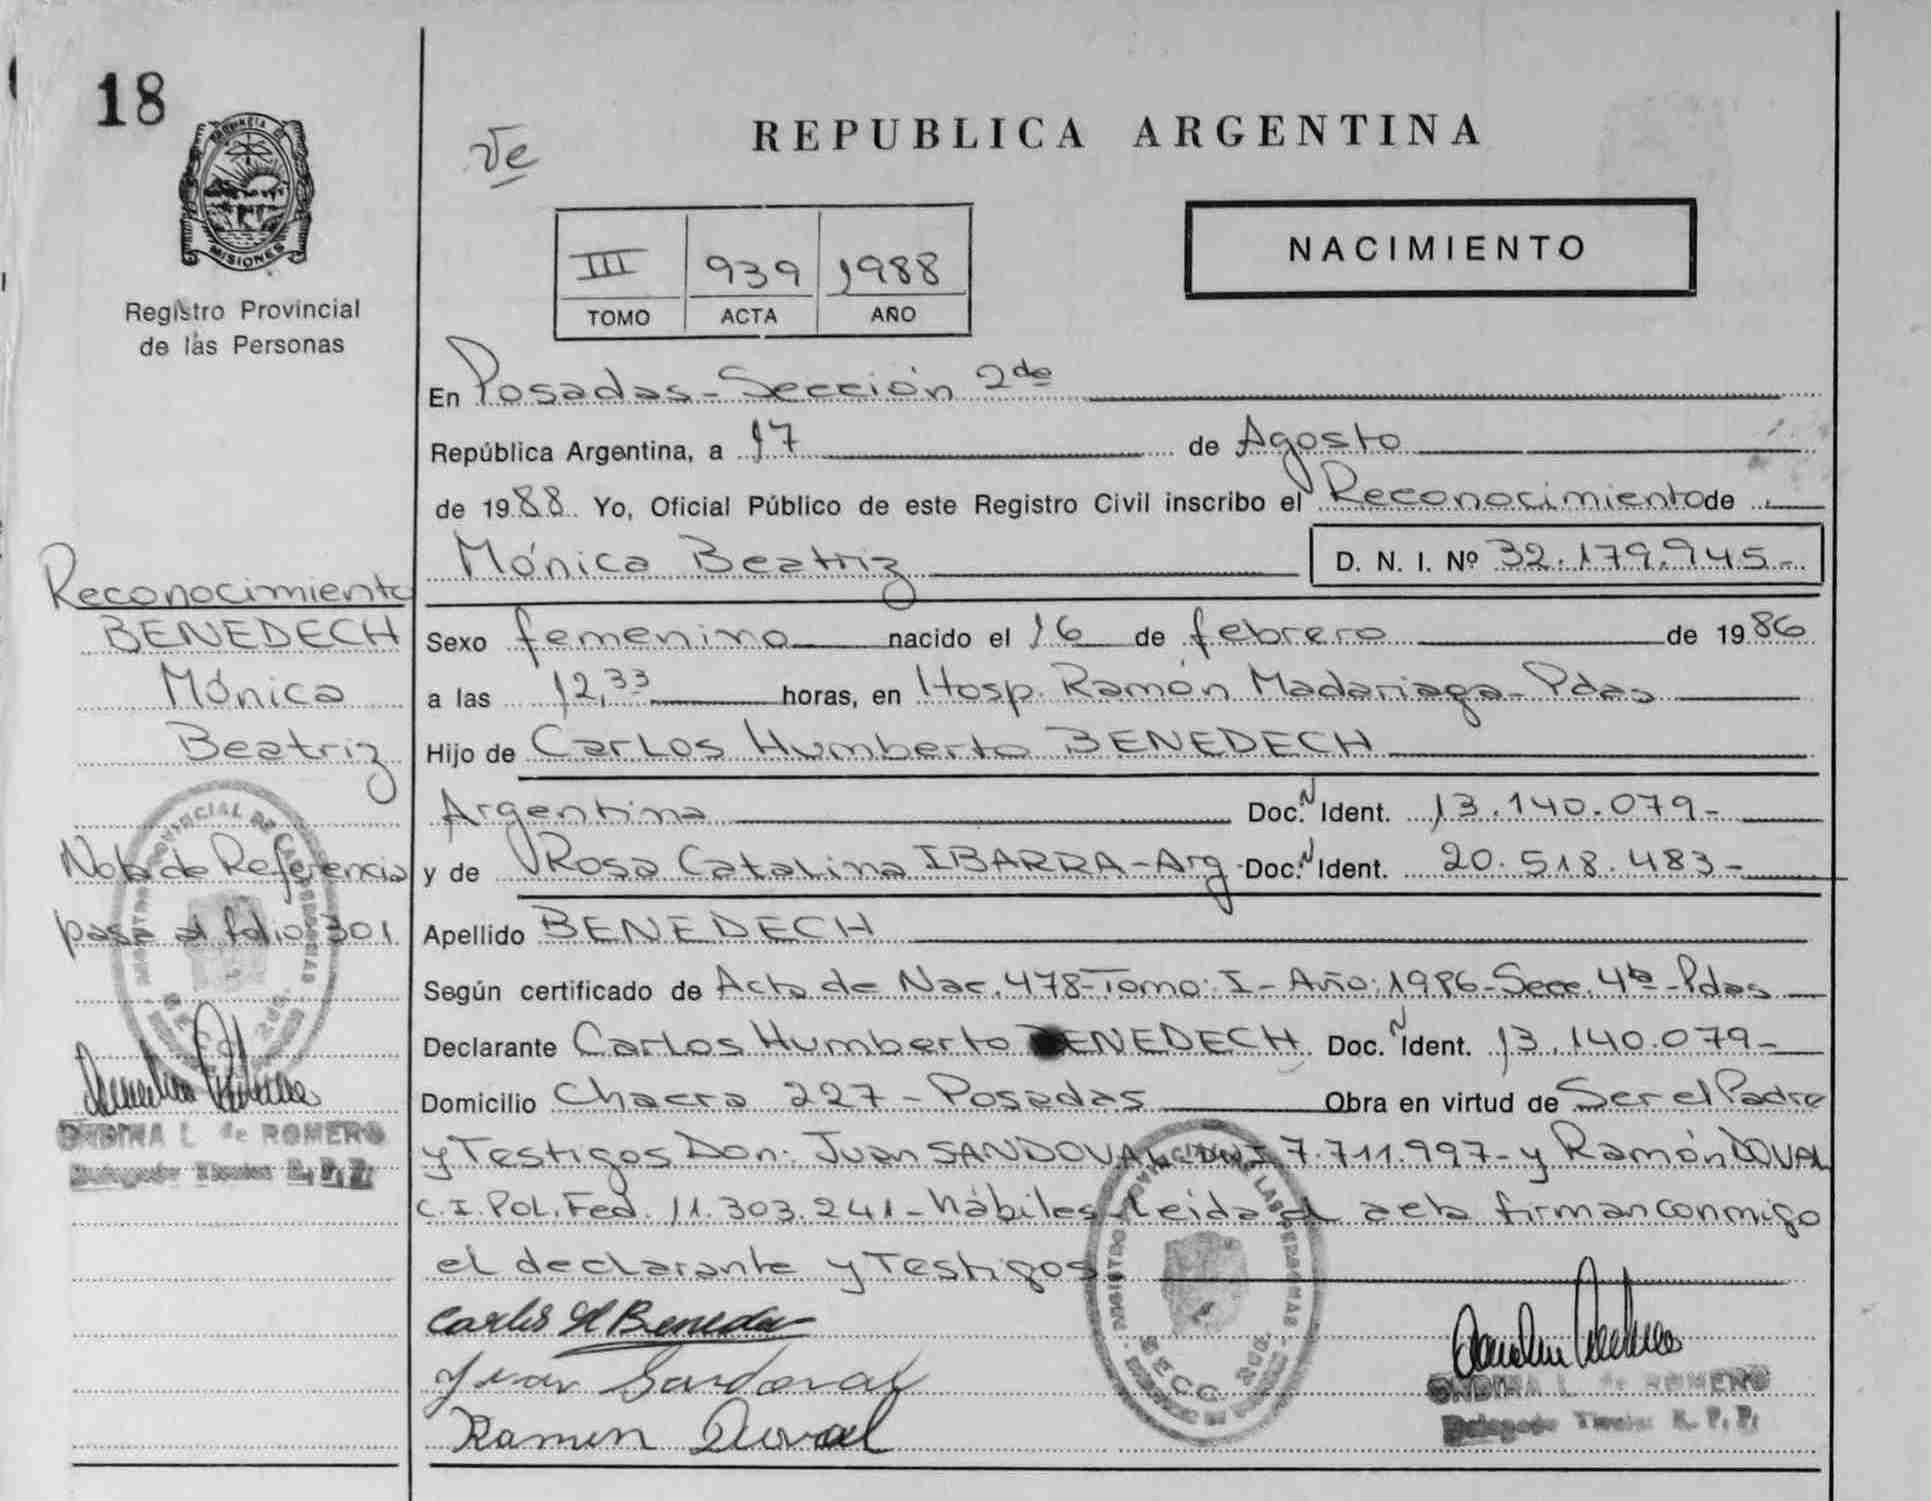 18
PROVINCIA DE
MISIONES
Registro Provincial
de las Personas
Ve
REPUBLICA ARGENTINA
III 939 1988
TOMO ACTA AÑO
NACIMIENTO
En Posadas - Sección 2da
República Argentina, a 17 de Agosto
de 1988. Yo, Oficial Público de este Registro Civil inscribo el Reconocimiento de
Mónica Beatriz D. N. I. Nº 32.179.945.-
Sexo femenino nacido el 16 de febrero de 1986
a las 12,33 horas, en Hosp. Ramón Madariaga - Pdas
Hijo de Carlos Humberto BENEDECH
Argentina Doc. N Ident. 13.140.079-
y de Rosa Catalina IBARRA - Arg. Doc. N Ident. 20.518.483-
Apellido BENEDECH
Según certificado de Acta de Nac. 478-Tomo: I - Año: 1986-Secc. 4ta-Pdas
Declarante Carlos Humberto BENEDECH Doc. N Ident. 13.140.079-
Domicilio Chacra 227 - Posadas Obra en virtud de Ser el Padre
y Testigos Don: Juan SANDOVAL - DNI 7.711.997- y Ramón DOVAL
C.I. Pol. Fed. 11.303.241 - hábiles - Leida el acta firman conmigo
el declarante y Testigos
Carlos H Benedech
Juan Sandoval
Ramon Doval
SECC. 2da.
ONDINA L. de ROMERO
Delegada Titular R. P. P.
Reconocimiento
BENEDECH
Mónica
Beatriz
Nota de Referencia
pasa al folio 301
ONDINA L. de ROMERO
Delegada Titular R. P. P.